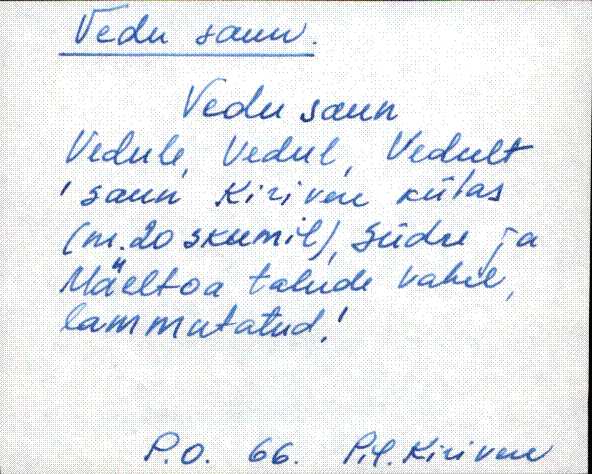 Vedu saun.
Vedu saun
Vedule, Vedul, Vedult
' saun Kirivere külas
(m. 20 skumil), Südre ja
Mäeltoa talude vahel,
lammutatud.'
P.O. 66. Pil. Kirivere